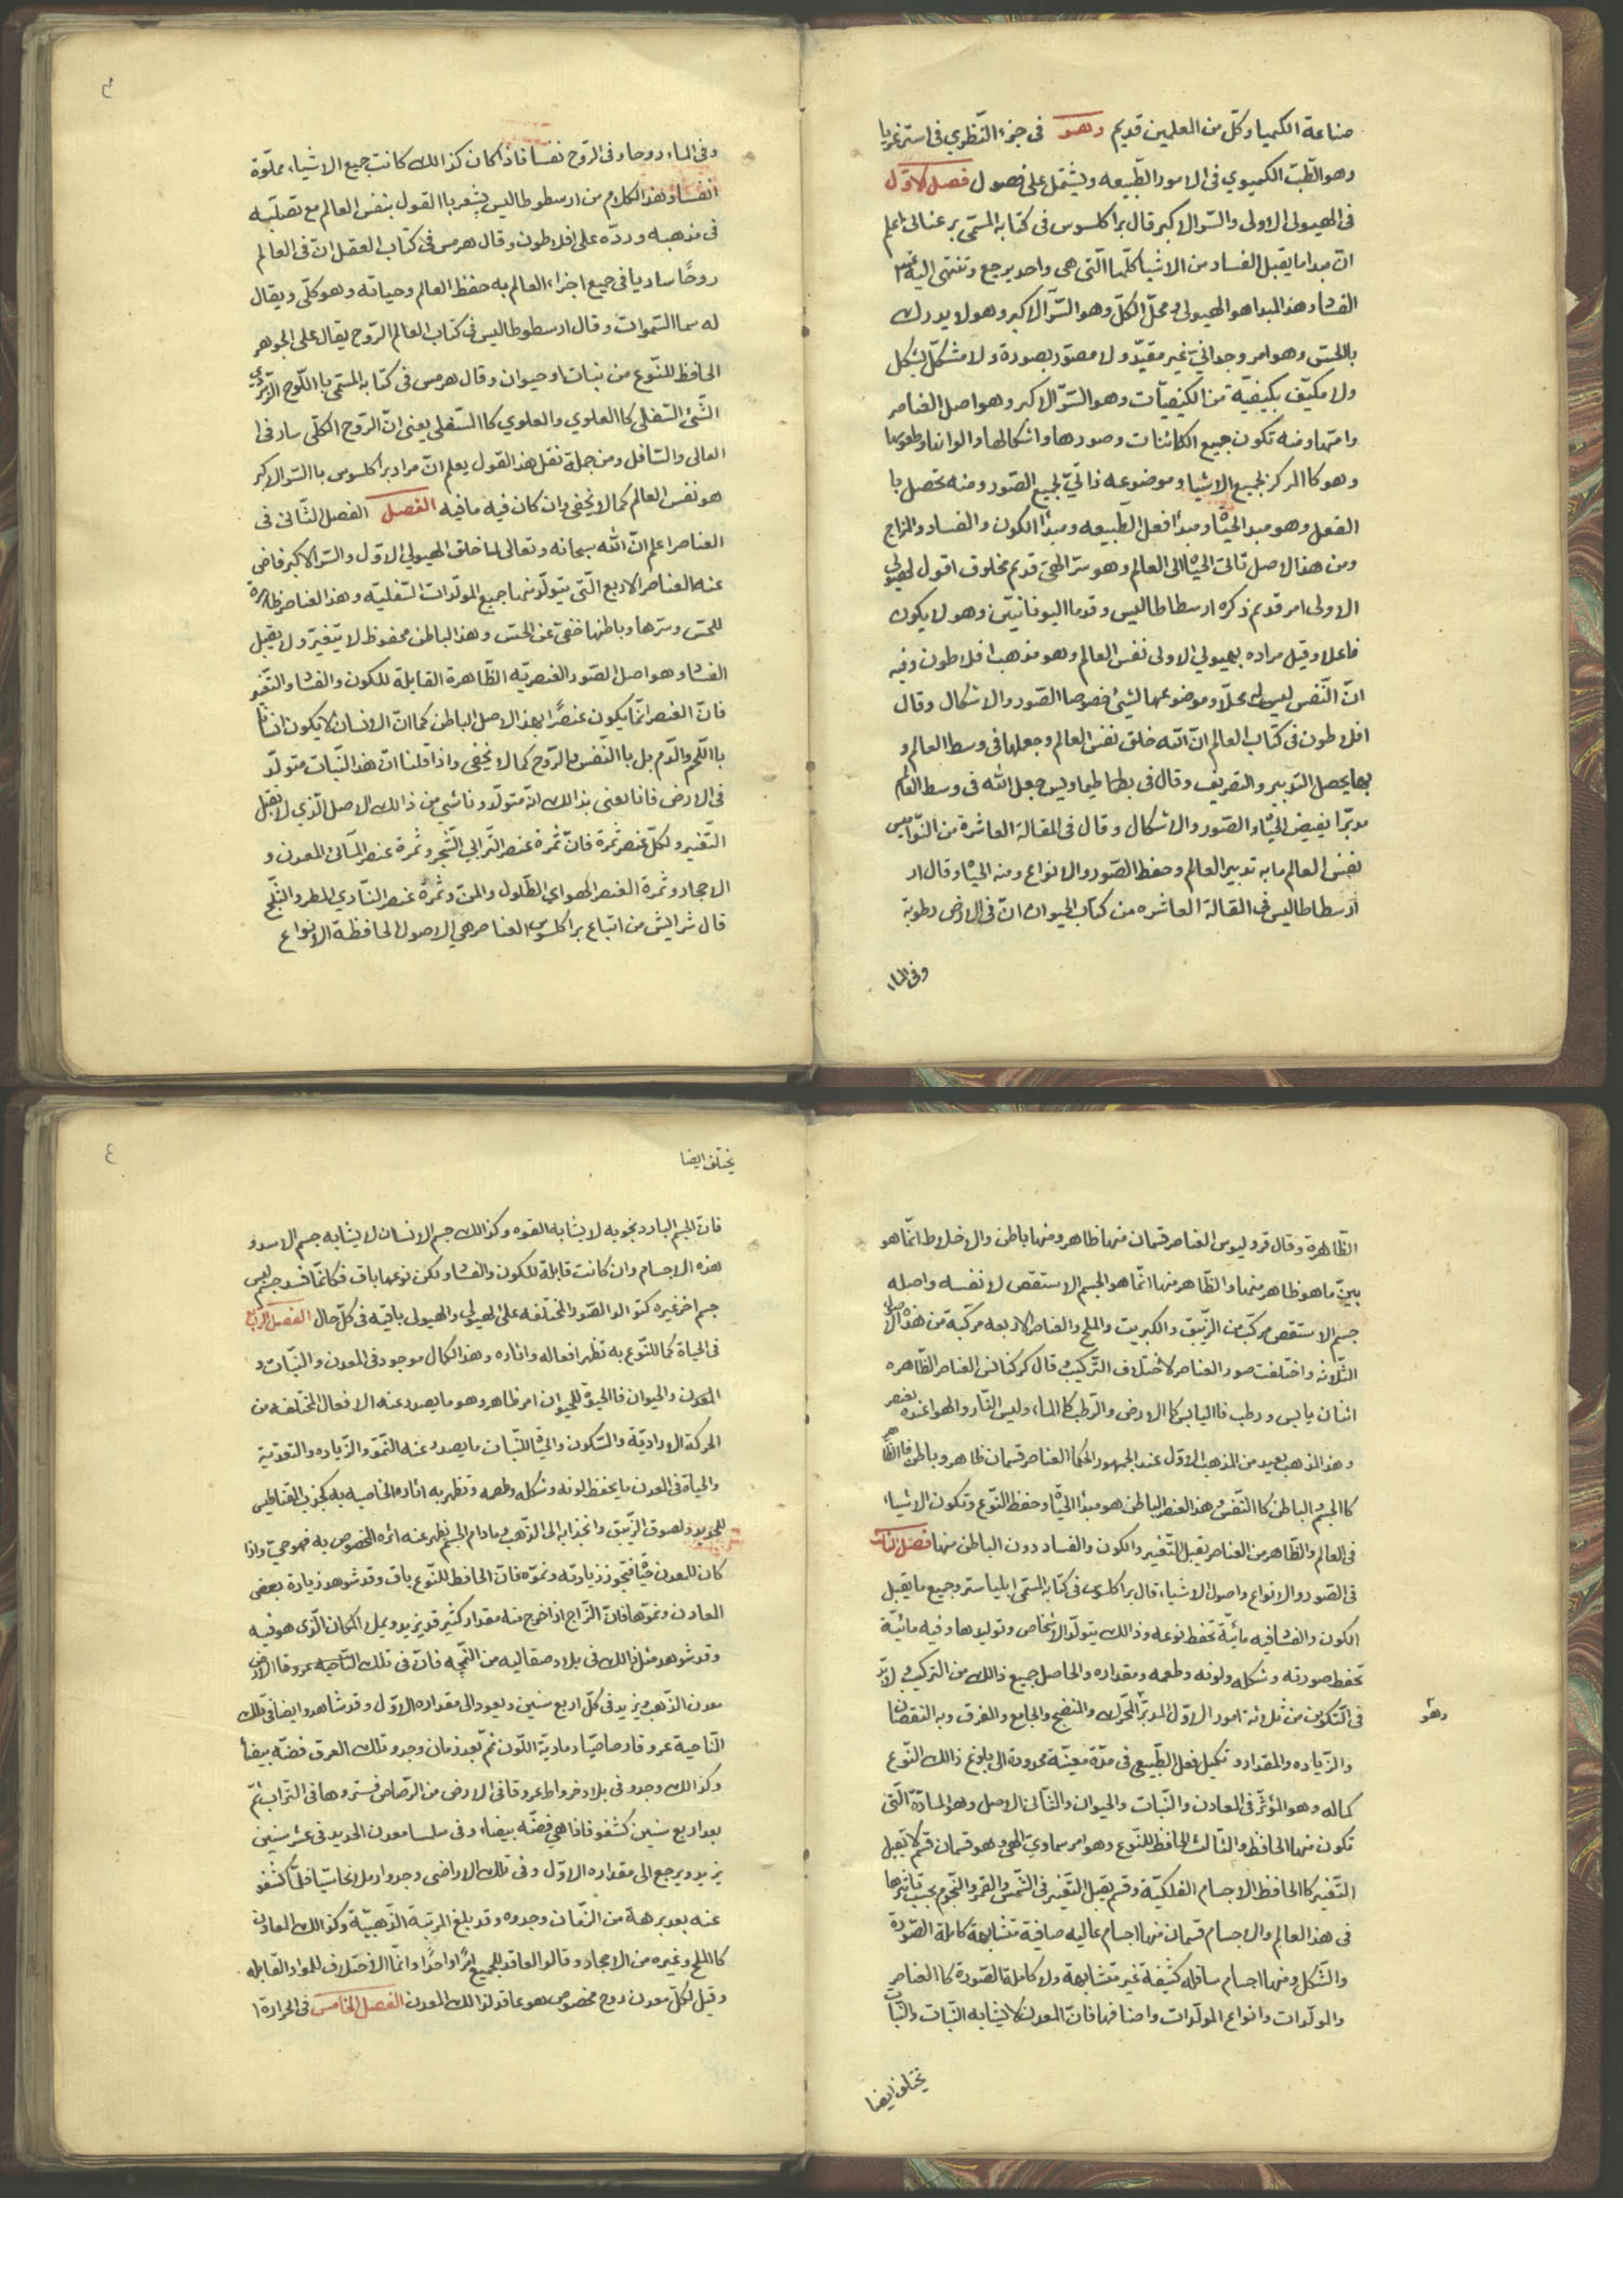 صناعة الكيميا وكل من العلمين قديم وهو في جزء النّظري في استرغريا
وهو الطّبّ الكيميوي في الامور الطّبيعه ويشتمل على فصول فصل الاوّل
في الهيولى الاولى والسّر الاكبر قال براكلسوس في كتابه المسمّى برعنالى اعلم
انّ مبدا ما يقبل الفساد من الاشيا كلّها الّتى هى واحد يرجع وتنتهى اليه عند
الفساد وهذا المبدا هو الهيولى ومحلّ الكلّ وهو السّرّ الاكبر وهو لا يدرك
بالحسّ وهو امر وجدانيّ غير مقيّد ولا مصوّر بصورة ولا مشكّل بشكل
ولا مكيّف بكيفيّة من الكيفيّات وهو السّرّ الاكبر وهو اصل العناصر
وامّها ومنه تكون جميع الكائنات وصورها واشكالها والوانها وطعومها
وهو كا المركز لجميع الاشيا وموضوعه ذاتيّ لجميع الصّور ومنه تحصل با
الفعل وهو مبدا الحيٰاة ومبدأ افعل الطّبيعه ومبدأ الكون والفساد والمزاج
ومن هذا الاصل تاتى الحياة الى العالم وهو سرّ الهيّ قديم مخلوف اقول الهيولى
الاولى امر قديم ذكره ارسطاطاليس وقدما اليونانيّين وهو لا يكون
فاعلا وقيل مراده بهيولي الاولى نفس العالم وهو مذهب افلاطون وفيه
انّ النّفس ليس له محلّا وموضوعها لشيئ خصوصا الصّور والاشكال وقال
افلاطون في كتاب العالم انّ الله خلق نفس العالم وجعلها في وسط العالم و
بها يحصل التدبير والتصريف وقال في بطماطيماوليس جعل الله في وسط العالم
مدبّرا يفيض الحيٰاة والصّور والاشكال وقال في المقالة العاشرة من النّواميس
نفس العالم ما به تدبير العالم وحفظ الصّور والانواع ومنه الحيٰاة وقال ار
ارسطاطاليس في المقالة العاشره من كتاب الحيوان انّ في الارض رطوبة
وفي الماء
وفي الماء روحا وفي الرّوح نفسا فاذا كان كذالك كانت جميع الاشياء مملّوة
انفسا وهذا الكلام من ارسطوطاليس يشعر با القول بنفس العالم مع تصلّبه
في مذهبه وردّه على افلاطون وقال هرمس في كتاب العقل انّ في العالم
روحًا ساريا في جميع اجزاء العالم به حفظ العالم وحياته وهو كلّي ويقال
له سما السّموات وقال ارسطوطاليس في كتاب العالم الرّوح يقال على الجوهر
الحافظ للنّوع من نبات او حيوان وقال هرمس في كتابه المسمّى با اللّوح الزّمرّدى
الشّيئ السّفلي كا العلوي والعلوي كا السّفلي يعنى انّ الرّوح الكلّي سار في ا
العالى والسّافل ومن جملة نقل هذا القول يعلم انّ مراد براكلسوس با السّر الاكبر
هو نفس العالم كما لا يخفى وان كان فيه ما فيه الفصل الفصل الثّانى في
العناصر اعلم انّ الله سبحانه وتعالى لما خلق الهيولي الاوّل والسّر الاكبر فاض
عنه العناصر الاربع الّتى يتولّد منها جميع المولّدات السّفليّه وهذا العناصر ظاهرة
للحسّ وسرّها وباطنها خفيّ عن الحسّ وهذا الباطن محفوظ لا يتغيّر ولا يقبل
الفساد وهو اصل الصّور العنصريّه الظّاهرة القابلة للكون والفساد والتّغيّر
فانّ العنصر انّما يكون عنصرًا بهذا الاصل الباطن كما انّ الانسان لا يكون انسانا
با اللّحم والدّم بل با النّفس والرّوح كما لا يخفى واذا قلنا انّ هذا النّبات متولّد
في الارض فانا يعنى بذالك انّه متولّد وناشي من ذالك الاصل الّذي لا يقبل
التّغير ولكلّ عنصر ثمرة فانّ ثمرة عنصر التّرابي الشّجر وثمرة عنصر المآئى المعدن و
الاحجار وثمرة العنصر الهواي الطّلول والمنّ وثمرة عنصر النّاري المطر والثّلج
قال شرايش من اتباع براكلسوس العناصر هي الاصول الحافظة الانواع
الظّاهرة وقال قروليوس العناصر قسمان منها ظاهر ومنها باطن والاخلاط انّما هو
بيّن ما هو ظاهر منها والظّاهر منها انّما هو الجسم الاستقص لا نفسه واصله
جسم الاستقص مركّب من الزّيبق والكبريت والملح والعناصر الاربعه مركّبة من هذه الاصول
الثّلاثه واختلفت صور العناصر لاختلاف التّركيب قال كركنانس العناصر الظّاهره
اثنان يابس ورطب فاليابس كا الارض والرّطب كا الماء وليس النّار والهوا عنده بعنصر
وهذا المذهب بعيد من المذهب الاوّل عند الجمهور الحكما العناصر قسمان ظاهر وباطن فا الظّاهر
كا الجسم الباطن كا النّفس وهذا العنصر الباطن هو مبدا الحيٰاة وحفظ النّوع وتكون الاشياء
في العالم والظّاهر من العناصر يقبل التّغير والكون والفساد دون الباطن منها فصل الثالث
في الصّور والانواع واصول الاشياء قال براكلوس في كتابه المسمّى ابلياستر وجميع ما يقبل
الكون والفساد فيه مائيّة تحفظ نوعه وذالك يتولّد الاشخاص وتوليدها وفيه مائيّة
تحفظ صورته وشكله ولونه وطعمه ومقداره والحاصل جميع ذالك من التركيب لا بدّ
في التّكوين من ثلاثة امور الاوّل المدبّر المحرّك والمنضج والجامع والمفرق وبه النقصان
وهو
والزّياده والمقدار وتكميل فعل الطّبيعى في مدّة معيّنة محدودة الى بلوغ ذالك النّوع
كماله وهو المؤثّر في المعادن والنّبات والحيوان والثّانى الاصل وهو المادّة الّتى
تكون منها الحافظ والثّالث الحافظ للنّوع وهو امر سماويّ الهي وهو قسمان قسم لا يقبل
التّغير كا الحافظ الاجسام الفلكيّة وقسم يقبل التّغير في الشّمس والقمر والنّجوم بحسب تأثيرها
في هذا العالم والاجسام قسمان منها اجسام عاليه صافية متشابهة كاملة الصّورة
والشّكل ومنها اجسام سافله كثيفة غير متشابهة ولا كاملة الصّورة كا العناصر
والمولّدات وانواع المولّدات واصنافها فانّ المعدن لا يشابه النّبات والنّبات
يختلف ايضا
يختلف ايضا
فانّ الجسم البارد بخوبه لا يشابه القوه وكذالك جسم الانسان لا يشابه جسم الاسد و
هذه الاجسام وان كانت قابلة للكون والفساد ولكن نوعها باق فكانّما فسد جسم لبس
جسم اخر غيره كتوالد الصّور المختلفه على الهيولي والهيولى باقيه في كلّ حال الفصل الرابع
في الحياة كما للنّوع به تظهر افعاله واثاره وهذا الكمال موجود في المعدن والنّبات و
المعدن والحيوان فا الحيوة للحيوان امر ظاهر وهو ما يصدر عنه الافعال المختلفه من
الحركة الاراديّة والسّكون والحيٰاة للنّبات ما يصدر عنه النّموّ والزّياده والتغذية
والحياة في المعدن ما يحفظ لونه وشكله وطعمه وتظهر به اثاره الخاصيه به كجذب المقناطيس
للحديد ولصوق الزّيبق وانجذابه الى الذّهب وما دام الجسم يظهر عنه اثره المخصوص به فهو حيّ واذا
كان للمعدن حيٰاة فيجوز زيادته ونموّه فانّ الحافظ للنّوع باق وقد شوهد زيادة بعض
المعادن ونموّها فانّ الزّاج اذا خرج منه مقدار كثير قد يزيد ويملا المكان الّذى هو فيه
وقد شوهد مثل ذالك في بلاد صقاليه من النمچه فانّ في تلك النّاحيه عروقا الارض
معدن الذّهب ويزيد في كلّ اربع سنين ويعود الى مقداره الاوّل وقد شاهدوا ايضا في تلك
النّاحية عروقا رصاصيّا رماديّة اللّون ثم بعد زمان وجدو تلك العرق فضّة بيضا
وكذالك وجدو في بلاد خرواط عروقا في الارض من الرّصاص فستروها في التّراب ثمّ
بعد اربع سنين كشفو فاذا هي فضّة بيضاء وفي سلسا معدن الحديد في عشر سنين
يزيد ويرجع الى مقداره الاوّل وفي تلك الاراضى وجدوا رملا نحاسيّا فلمّا كشفو
عنه بعد برهة من الزّمان وجدوه وقد بلغ المرتبة الذّهبيّة وكذالك المعادن
كا الملح وغيره من الاحجار وقالو العاقد للجميع امرًا واحدًا وانّما الاختلاف للمواد القابله
وقيل لكلّ معدن روح مخصوص هو عاقد لذالك المعدن الفصل الخامس في الحرارة ا